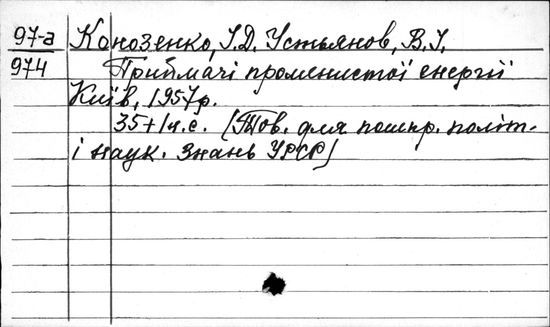 97-а Конозенко, І.Д. Устьянов, В.І.
974 Приймачі променистої енергії
Київ, 1957р.
35+1н.с. (Тов. для пошир. політ-
і наук. Знань УРСР)